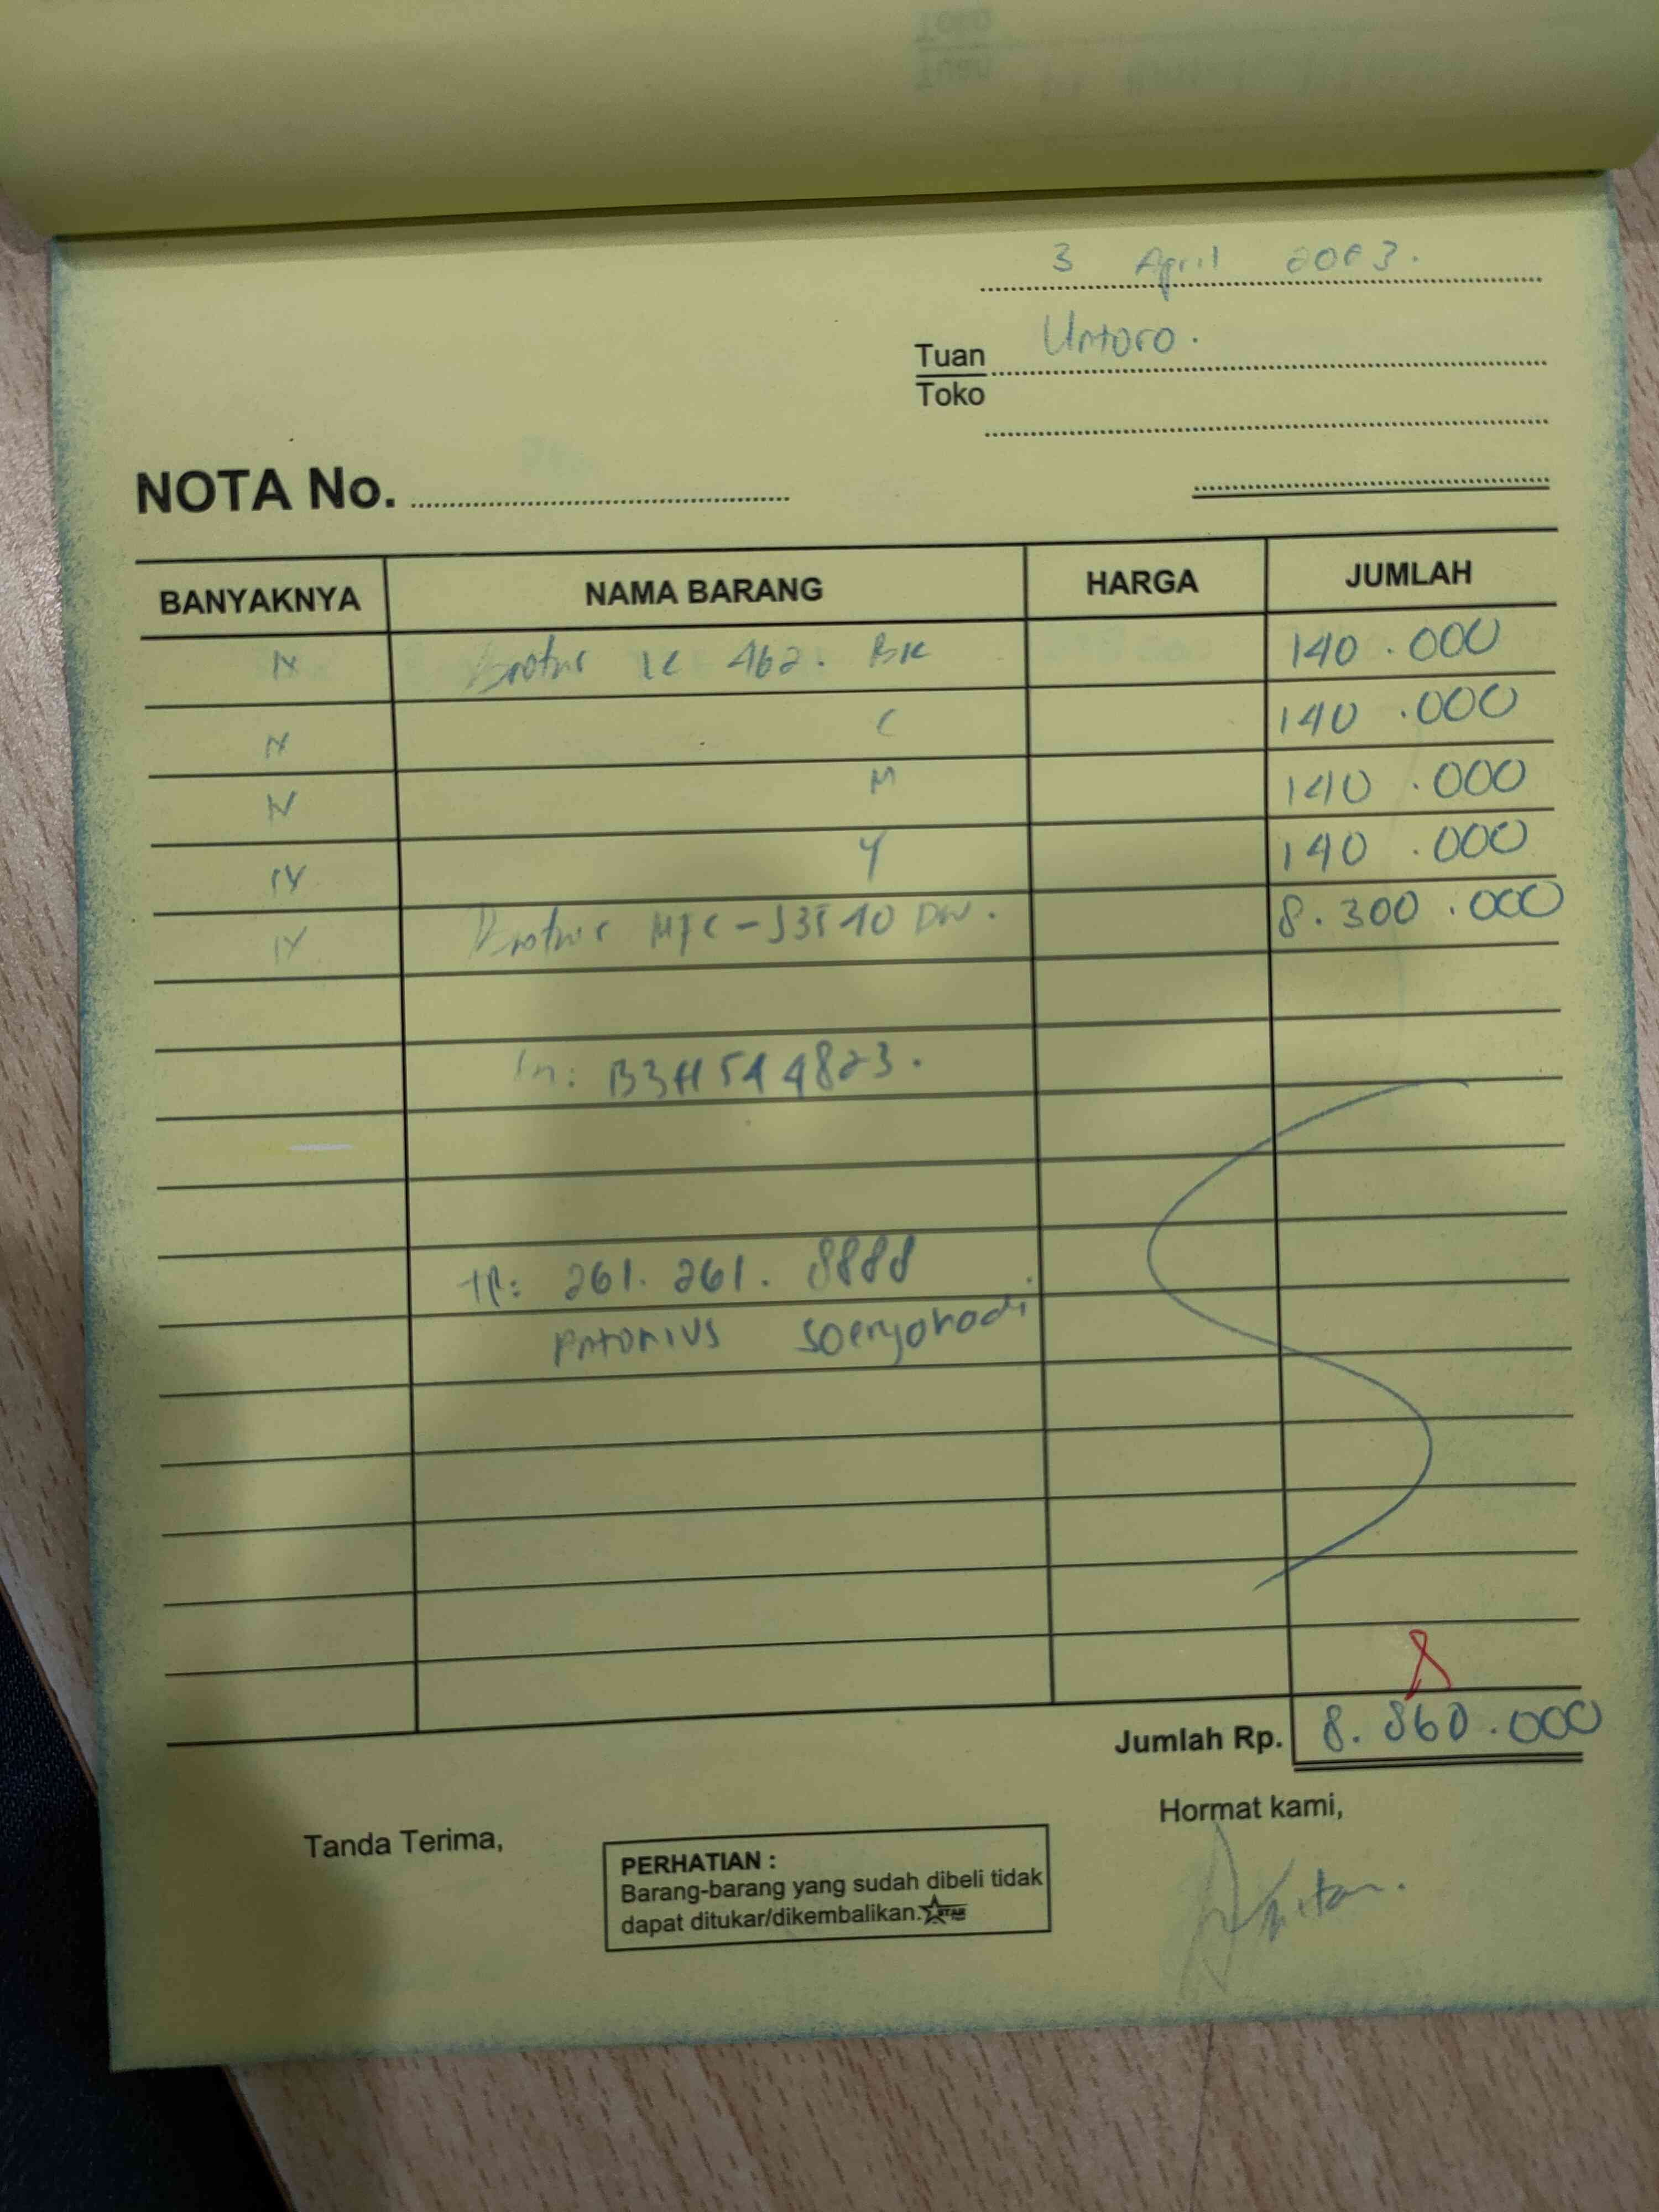 3 April 2023.
Tuan Untoro.
Toko
NOTA No.
BANYAKNYA NAMA BARANG HARGA JUMLAH
1x Brother LC 462. BK 140.000
1x C 140.000
1x M 140.000
1x Y 140.000
1x Brother MFC-J3540 DW. 8.300.000
Sn: B3H544823.
TR: 261.261.8888
Antonius Soeryohadi
8
Jumlah Rp. 8.860.000
Hormat kami,
Tanda Terima,
PERHATIAN :
Barang-barang yang sudah dibeli tidak
dapat ditukar/dikembalikan. STAR